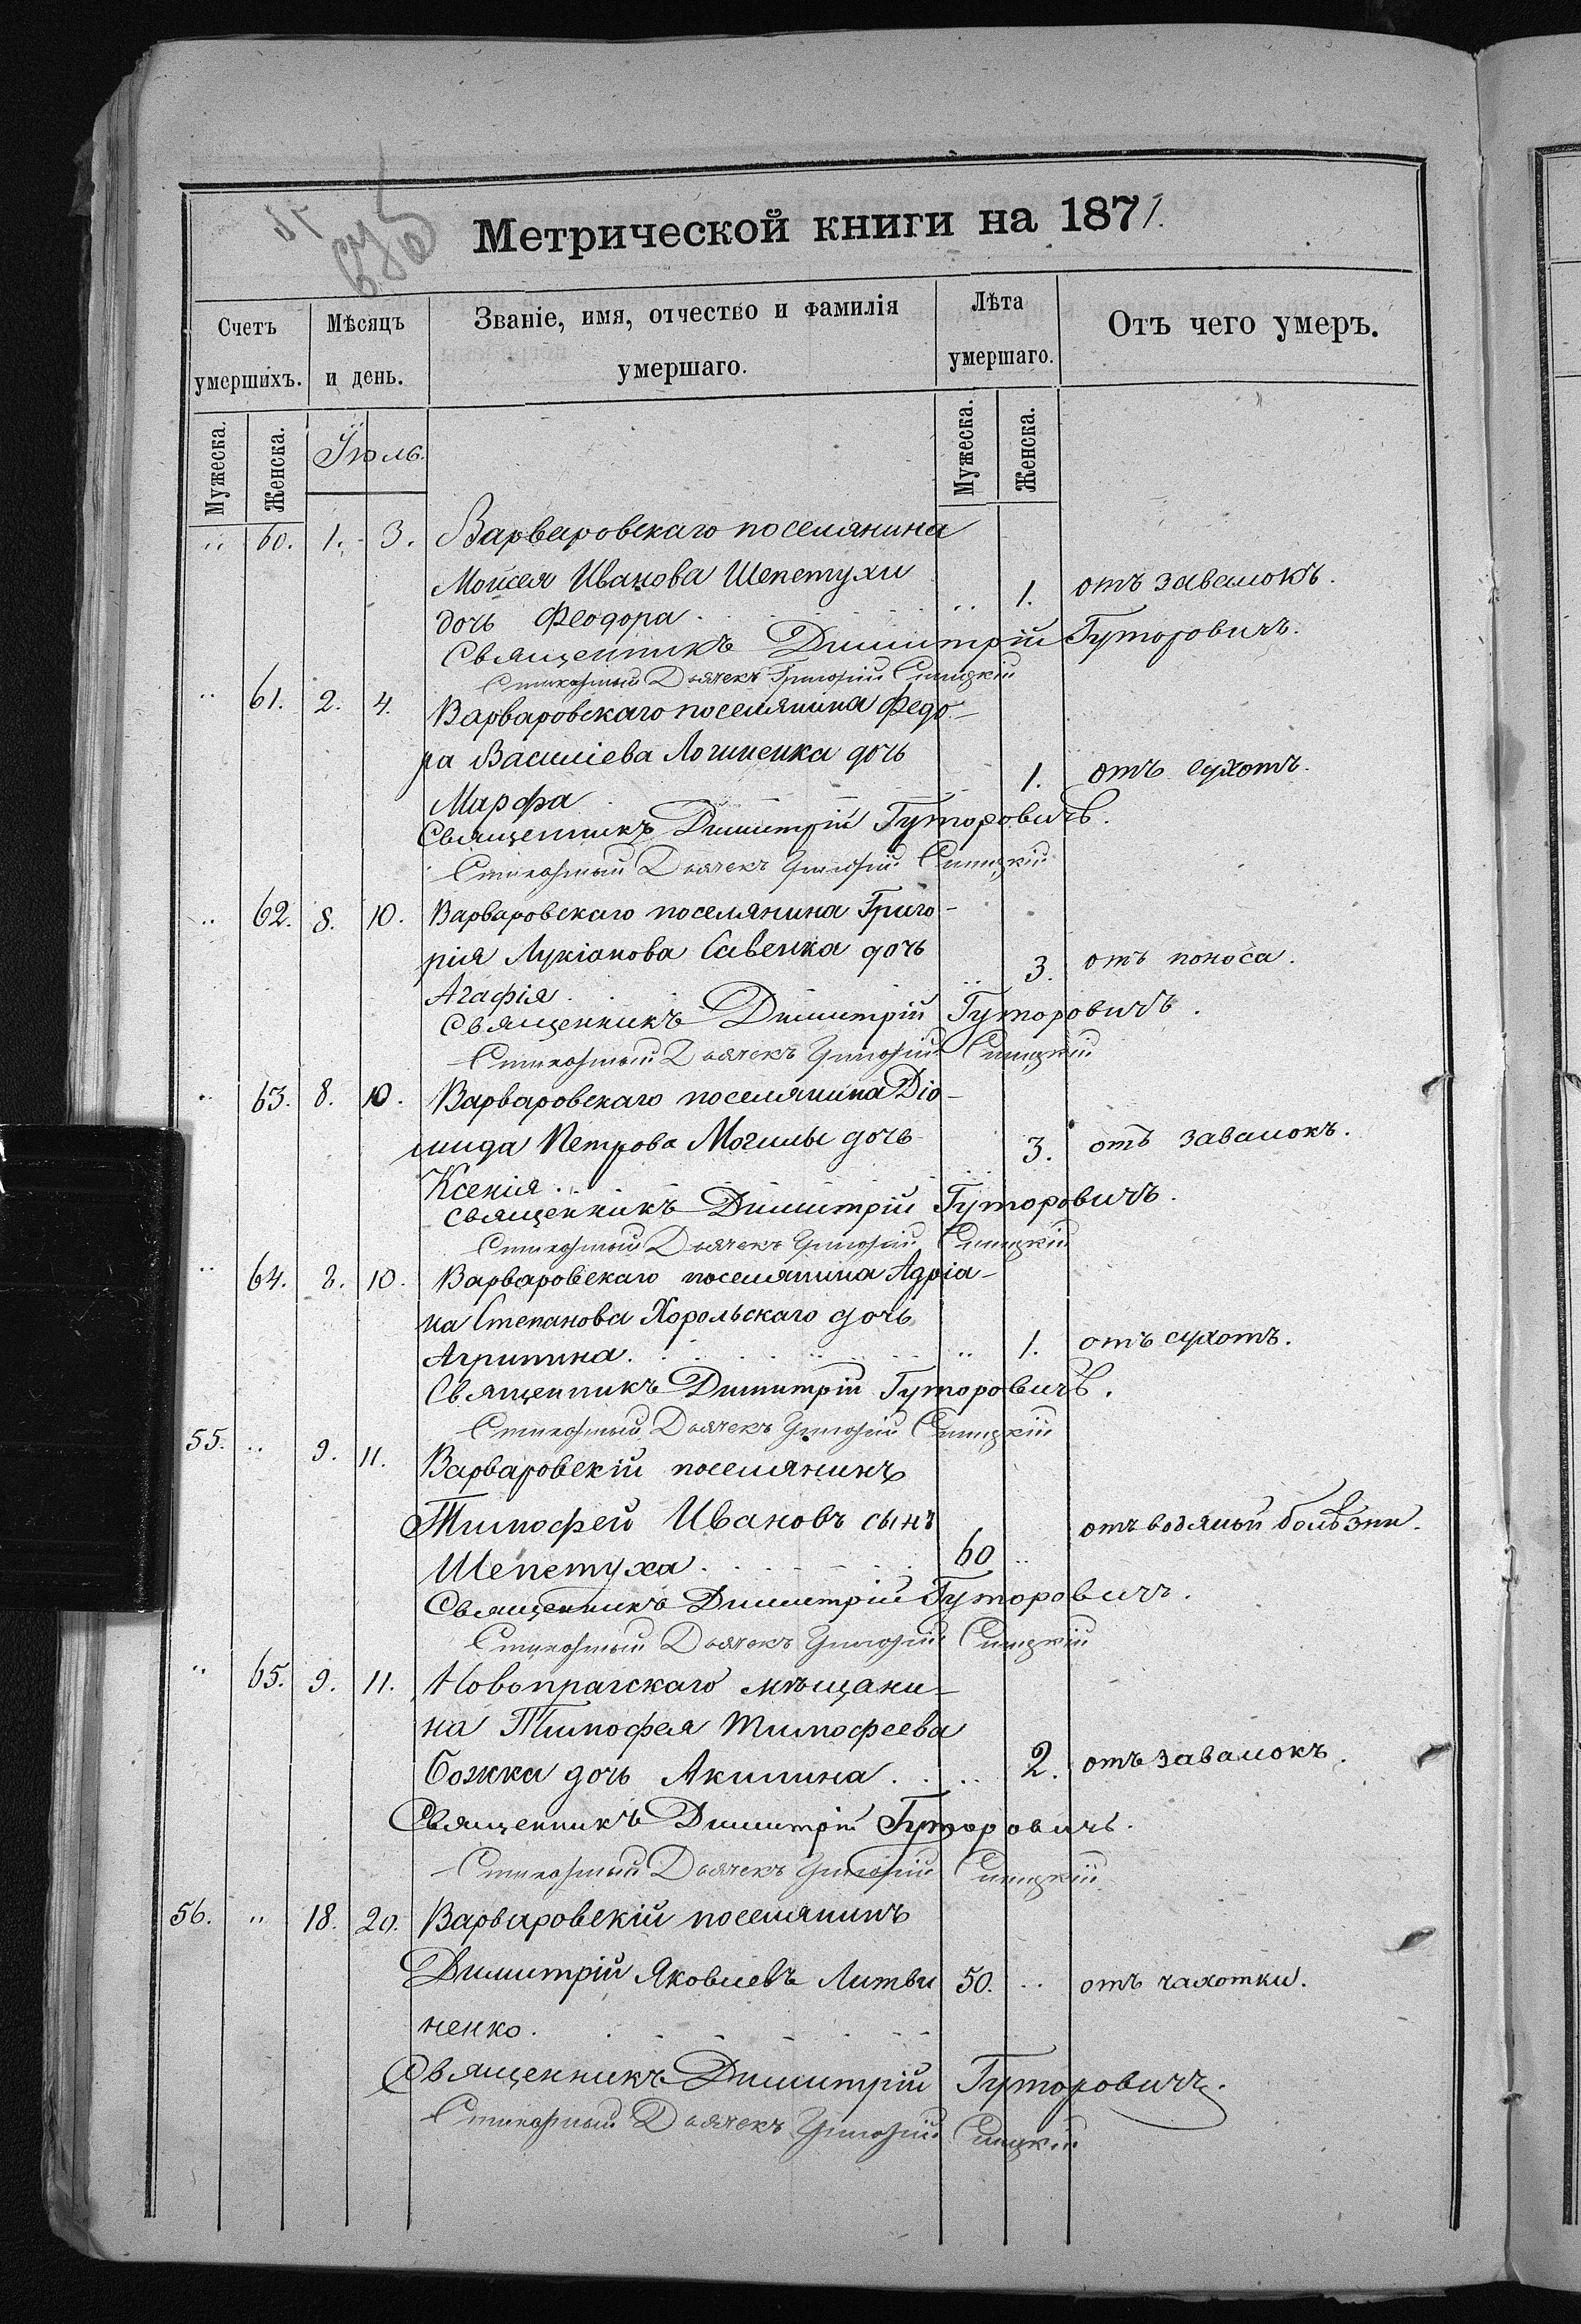 Метрической книги на 1871.
Счетъ умершихъ.
Мѣсяцъ и день.
Званіе, имя, отчество и фамилія умершаго.
Лѣта умершаго.
Отъ чего умеръ.
Мужеска. Женска. Іюль. Мужеска. Женска.
„ 60. 1. 3. Варваровскаго поселянина
Моисея Иванова Шепетухи
дочь Феодора. „ 1. отъ завалокъ.
Священникъ Димитрій Гуторовичъ.
Стихарный Дьячекъ Григорій
„ 61. 2. 4. Варваровскаго поселянина Федо-
ра Василіева Логиненка дочь
Марфа „ 1. отъ сухотъ.
Священникъ Димитрій Гуторовичъ.
Стихарный Дьячекъ Григорій
„ 62. 8. 10. Варваровскаго поселянина Григо-
рія Лукіанова Савенка дочь
Агафія. „ 3. отъ поноса.
Священникъ Димитрій Гуторовичъ.
Стихарный Дьячекъ Григорій
„ 63. 8. 10. Варваровскаго поселянина Діо-
мида Петрова Могилы дочь
Ксенія. „ 3. отъ завалокъ.
Священникъ Димитрій Гуторовичъ.
Стихарный Дьячекъ Григорій
„ 64. 8. 10. Варваровскаго поселянина Адріа-
на Степанова Хорольскаго дочь
Агрипина. „ 1. отъ сухотъ.
Священникъ Димитрій Гуторовичъ.
Стихарный Дьячекъ Григорій
55. „ 9. 11. Варваровскій поселянинъ
Тимофей Ивановъ сынъ
Шепетуха. 60 „ отъ водяной болѣзни.
Священникъ Димитрій Гуторовичъ.
Стихарный Дьячекъ Григорій
„ 65. 9. 11. Новопрагскаго мѣщани-
на Тимофея Тимофеева
Божка дочь Акилина. „ 2. отъ завалокъ.
Священникъ Димитрій Гуторовичъ.
Стихарный Дьячекъ Григорій
56. „ 18. 20. Варваровскій поселянинъ
Димитрій Яковлевъ Литви 50. „ отъ чахотки.
ненко.
Священникъ Димитрій Гуторовичъ.
Стихарный Дьячекъ Григорій